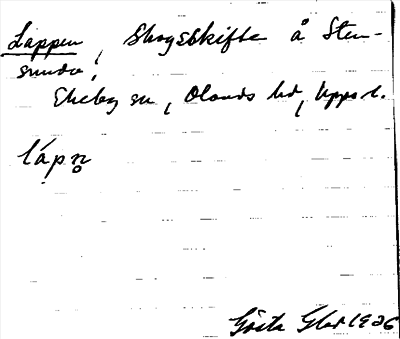 Lappen, Skogsskifte å Sten-
sunda,
Ekeby sn, Olands hd, Upps. l.
lápn̥
Gösta 1926